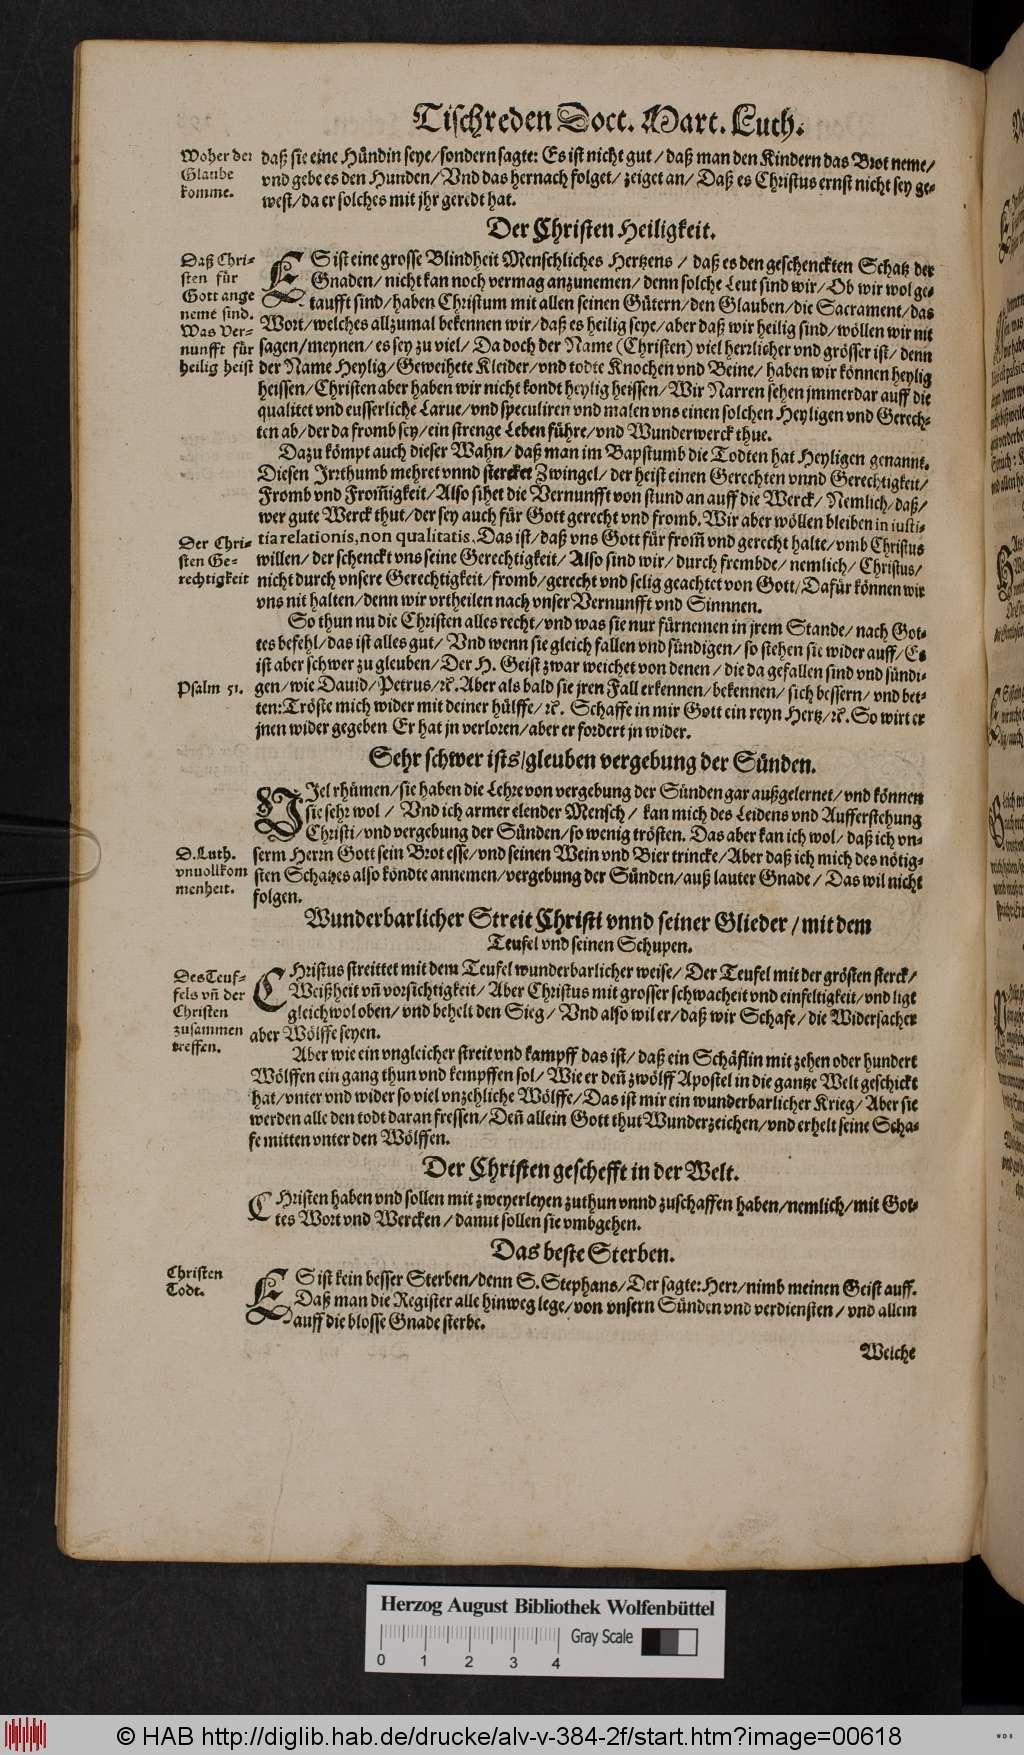 Tischreden Doct. Mart. Luth.
Woher der
Glaube
komme.
daß sie eine Hündin seye/sondern sagte: Es ist nicht gut/daß man den Kindern das Brot neme/
vnd gebe es den Hunden/Vnd das hernach folget/zeiget an/Daß es Christus ernst nicht sey ge-
west/da er solches mit jhr geredt hat.
Der Christen Heiligkeit.
Daß Chri-
sten für
Gott ange
neme sind.
Was Ver-
nunfft für
heilig heist
ES ist eine grosse Blindheit Menschliches Hertzens/daß es den geschenckten Schatz der
Gnaden/nicht kan noch vermag anzunemen/denn solche Leut sind wir/Ob wir wol ge-
taufft sind/haben Christum mit allen seinen Gütern/den Glauben/die Sacrament/das
Wort/welches allzumal bekennen wir/daß es heilig seye/aber daß wir heilig sind/wöllen wir nit
sagen/meynen/es sey zu viel/Da doch der Name (Christen) viel herrlicher vnd grösser ist/denn
der Name Heylig/Geweihete Kleider/vnd todte Knochen vnd Beine/haben wir können heylig
heissen/Christen aber haben wir nicht kondt heylig heissen/Wir Narren sehen jmmerdar auff die
qualitet vnd eusserliche Larue/vnd speculiren vnd malen vns einen solchen Heyligen vnd Gerech-
ten ab/der da fromb sey/ein strenge Leben führe/vnd Wunderwerck thue.
Dazu kömpt auch dieser Wahn/daß man im Bapstumb die Todten hat Heyligen genannt.
Diesen Irrthumb mehret vnnd stercket Zwingel/der heist einen Gerechten vnnd Gerechtigkeit/
Fromb vnd From̃igkeit/Also sihet die Vernunfft von stund an auff die Werck/Nemlich/daß/
wer gute Werck thut/der sey auch für Gott gerecht vnd fromb. Wir aber wöllen bleiben in iusti-
tia relationis, non qualitatis. Das ist/daß vns Gott für from̃ vnd gerecht halte/vmb Christus
Der Chri-
sten Ge-
rechtigkeit
willen/der schenckt vns seine Gerechtigkeit/Also sind wir/durch frembde/nemlich/Christus/
nicht durch vnsere Gerechtigkeit/fromb/gerecht vnd selig geachtet von Gott/Dafür können wir
vns nit halten/denn wir vrtheilen nach vnser Vernunfft vnd Sinnnen.
So thun nu die Christen alles recht/vnd was sie nur fürnemen in jrem Stande/nach Got-
tes befehl/das ist alles gut/Vnd wenn sie gleich fallen vnd sündigen/so stehen sie wider auff/Es
ist aber schwer zu gleuben/Der H. Geist zwar weichet von denen/die da gefallen sind vnd sündi-
Psalm 51.
gen/wie Dauid/Petrus/ꝛc. Aber als bald sie jren Fall erkennen/bekennen/sich bessern/vnd bet-
ten: Tröste mich wider mit deiner hülffe/ꝛc. Schaffe in mir Gott ein reyn Hertz/ꝛc. So wirt er
jnen wider gegeben Er hat jn verloren/aber er fordert jn wider.
Sehr schwer ists/gleuben vergebung der Sünden.
VIel rhümen/sie haben die Lehre von vergebung der Sünden gar außgelernet/vnd können
sie sehr wol/Vnd ich armer elender Mensch/kan mich des Leidens vnd Aufferstehung
Christi/vnd vergebung der Sünden/so wenig trösten. Das aber kan ich wol/daß ich vn-
D. Luth.
vnuollkom
menheit.
serm Herrn Gott sein Brot esse/vnd seinen Wein vnd Bier trincke/Aber daß ich mich des nötig-
sten Schatzes also köndte annemen/vergebung der Sünden/auß lauter Gnade/Das wil nicht
folgen.
Wunderbarlicher Streit Christi vnnd seiner Glieder/mit dem
Teufel vnd seinen Schupen.
Des Teuf-
fels vñ der
Christen
zusammen
treffen.
CHristus streittet mit dem Teufel wunderbarlicher weise/Der Teufel mit der grösten sterck/
Weißheit vñ vorsichtigkeit/Aber Christus mit grosser schwacheit vnd einfeltigkeit/vnd ligt
gleichwol oben/vnd behelt den Sieg/Vnd also wil er/daß wir Schafe/die Widersacher
aber Wölffe seyen.
Aber wie ein vngleicher streit vnd kampff das ist/daß ein Schäflin mit zehen oder hundert
Wölffen ein gang thun vnd kempffen sol/Wie er deñ zwölff Apostel in die gantze Welt geschickt
hat/vnter vnd wider so viel vnzehliche Wölffe/Das ist mir ein wunderbarlicher Krieg/Aber sie
werden alle den todt daran fressen/Deñ allein Gott thut Wunderzeichen/vnd erhelt seine Scha-
fe mitten vnter den Wölffen.
Der Christen geschefft in der Welt.
CHristen haben vnd sollen mit zweyerleyen zuthun vnnd zuschaffen haben/nemlich/mit Got-
tes Wort vnd Wercken/damit sollen sie vmbgehen.
Das beste Sterben.
Christen
Todt.
ES ist kein besser Sterben/denn S. Stephans/Der sagte: Herr/nimb meinen Geist auff.
Daß man die Register alle hinweg lege/von vnsern Sünden vnd verdiensten/vnd allein
auff die blosse Gnade sterbe.
Welche
Herzog August Bibliothek Wolfenbüttel
Gray Scale
0 1 2 3 4
© HAB http://diglib.hab.de/drucke/alv-v-384-2f/start.htm?image=00618